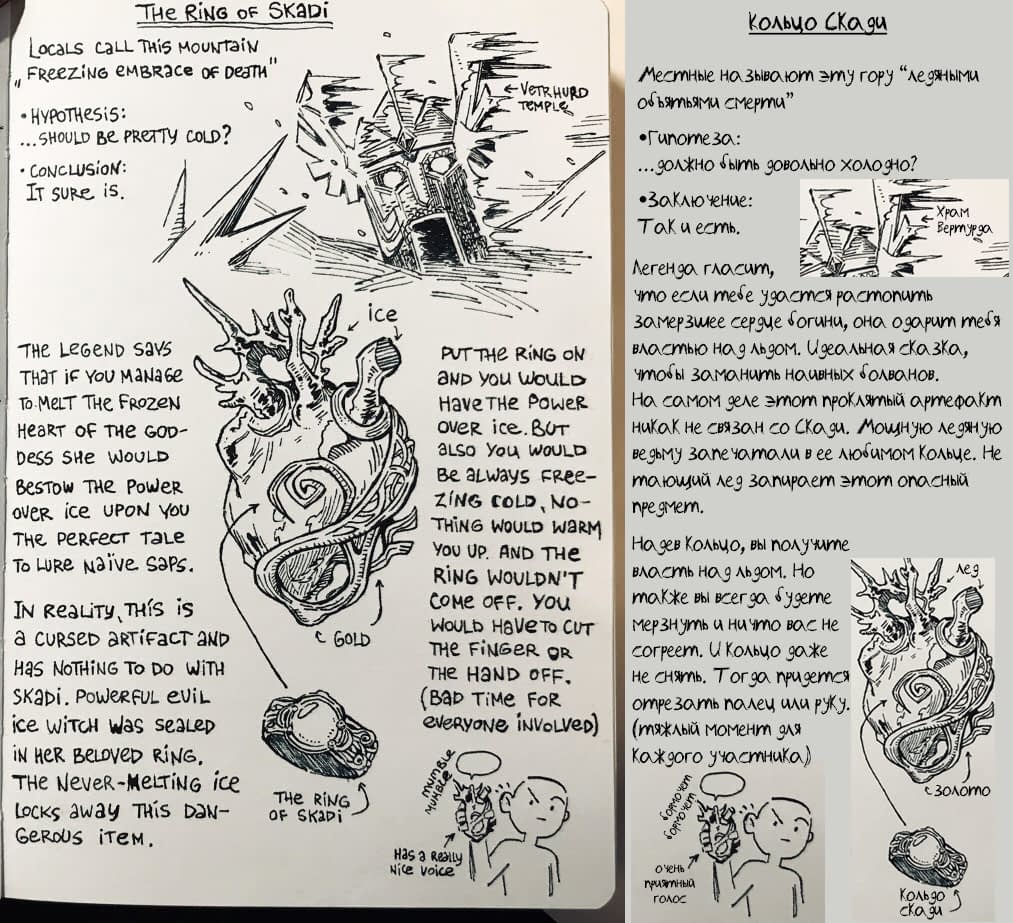 The Ring of Skadi
Locals call this mountain
„Freezing embrace of death"
• Hypothesis:
...should be pretty cold?
• Conclusion:
It sure is.
← Vetrhurd
temple
ice
The legend says
that if you manage
to melt the frozen
heart of the god-
dess she would
bestow the power
over ice upon you
The perfect tale
to lure naïve saps.
In reality, this is
a cursed artifact and
has nothing to do with
Skadi. Powerful evil
ice witch was sealed
in her beloved ring.
The never-melting ice
locks away this dan-
gerous item.
Gold
The Ring
of Skadi
Put the ring on
and you would
have the power
over ice. But
also you would
be always free-
zing cold, no-
thing would warm
you up. And the
ring wouldn't
come off. You
would have to cut
the finger or
the hand off.
(Bad time for
everyone involved)
Mumble
mumble
Has a really
nice voice
Кольцо Скади
Местные называют эту гору "ледяными
объятьями смерти"
•Гипотеза:
...должно быть довольно холодно?
•Заключение:
Так и есть.
← Храм
Вертурда
Легенда гласит,
что если тебе удастся растопить
замерзшее сердце богини, она одарит тебя
властью над льдом. Идеальная сказка,
чтобы заманить наивных болванов.
На самом деле этот проклятый артефакт
никак не связан со Скади. Мощную ледяную
ведьму запечатали в ее любимом Кольце. Не
тающий лед запирает этот опасный
предмет.
Надев Кольцо, вы получите
власть над льдом. Но
также вы всегда будете
мерзнуть и ничто вас не
согреет. И Кольцо даже
не снять. Тогда придется
отрезать палец или руку.
(тяжлый момент для
каждого участника)
лед
золото
Кольдо
Скади
бормочет
бормочет
очень
приятный
голос